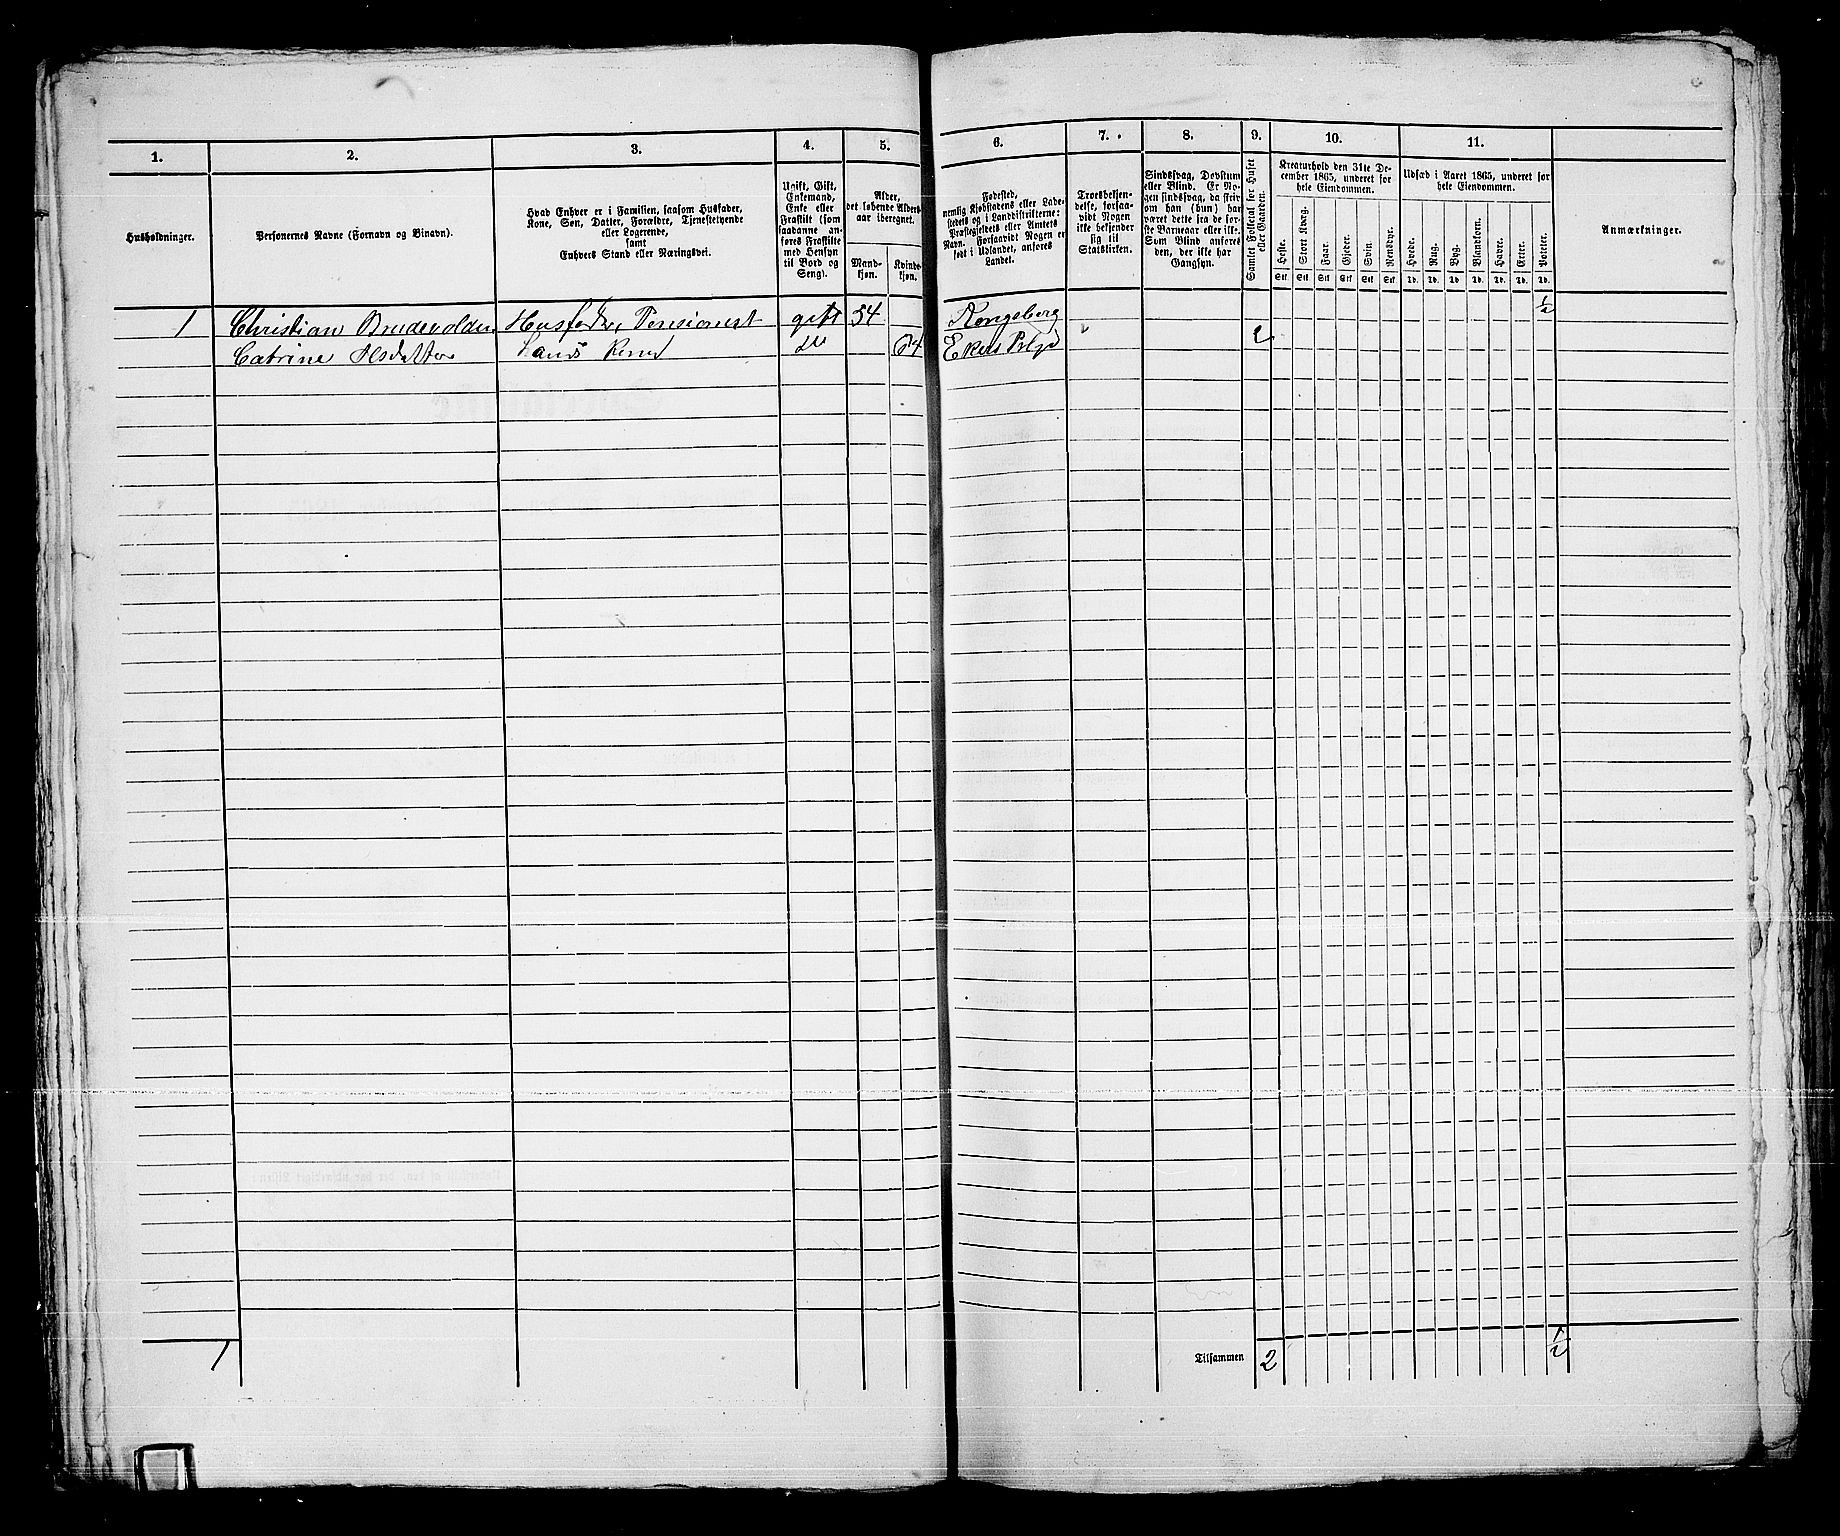 1. 2. 3. 4. 5. 6. 7. 8. 9. 10. 11.
Husholdninger.
Personernes Navne (Fornavn og Binavn).
Hvad Enhver er i Familien, saasom Husfader,
Kone, Søn, Datter, Forældre, Tjenestetyende
eller Logerende,
samt
Enhvers Stand eller Næringsvei.
Ugift, Gift,
Enkemand,
Enke eller
Fraskilt (som
saadanne an-
føres Fraskilte
med Hensyn
til Bord og
Seng).
Alder,
det løbende Alders-
aar iberegnet.
Mand-
kjøn.
Kvinde-
kjøn.
Fødested,
nemlig Kjøbstadens eller Lade-
stedets og i Landdistrikterne:
Præstegjeldets eller Amtets
Navn. Forsaavidt Nogen er
født i Udlandet, anføres
Landet.
Troesbekjen-
delse, forsaa-
vidt Nogen
ikke bekjender
sig til
Statskirken.
Sindssvag, Døvstum
eller Blind. Er No-
gen sindssvag, da skri-
ves om han (hun) har
været dette fra de før-
ste Barneaar eller ikke.
Som Blind anføres
den, der ikke har
Gangsyn.
Samlet Folketal for Huset
eller Gaarden.
Kreaturhold den 31te De-
cember 1865, underet for
hele Eiendommen.
Heste. Stort Kvæg. Faar. Gjeder. Svin. Rensdyr.
Stk. Stk. Stk. Stk. Stk. Stk.
Udsæd i Aaret 1865, underet for
hele Eiendommen.
Hvede. Rug. Byg. Blandkorn. Havre. Erter. Poteter.
Td. Td. Td. Td. Td. Td. Td.
Anmærkninger.
1 Christian Husfader, Pensionist gift 54 Kongsberg 1/2
Catrine Hans Kone do 64 Ekers 2
1 Tilsammen 2 1/2